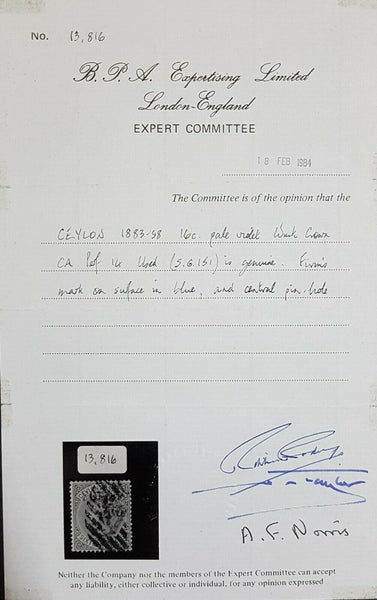 No. 13,816
B. P. A. Expertising Limited
London-England
EXPERT COMMITTEE
18 FEB 1984
The Committee is of the opinion that the
CEYLON 1883-98 16c. pale violet Wmk Crown
CA Perf 14 Used (S.G.151) is genuine. Firm's
mark on surface in blue, and central pin-hole
13,816
A. F. Norris
Neither the Company nor the members of the Expert Committee can accept
any liability, either collective or individual, for any opinion expressed